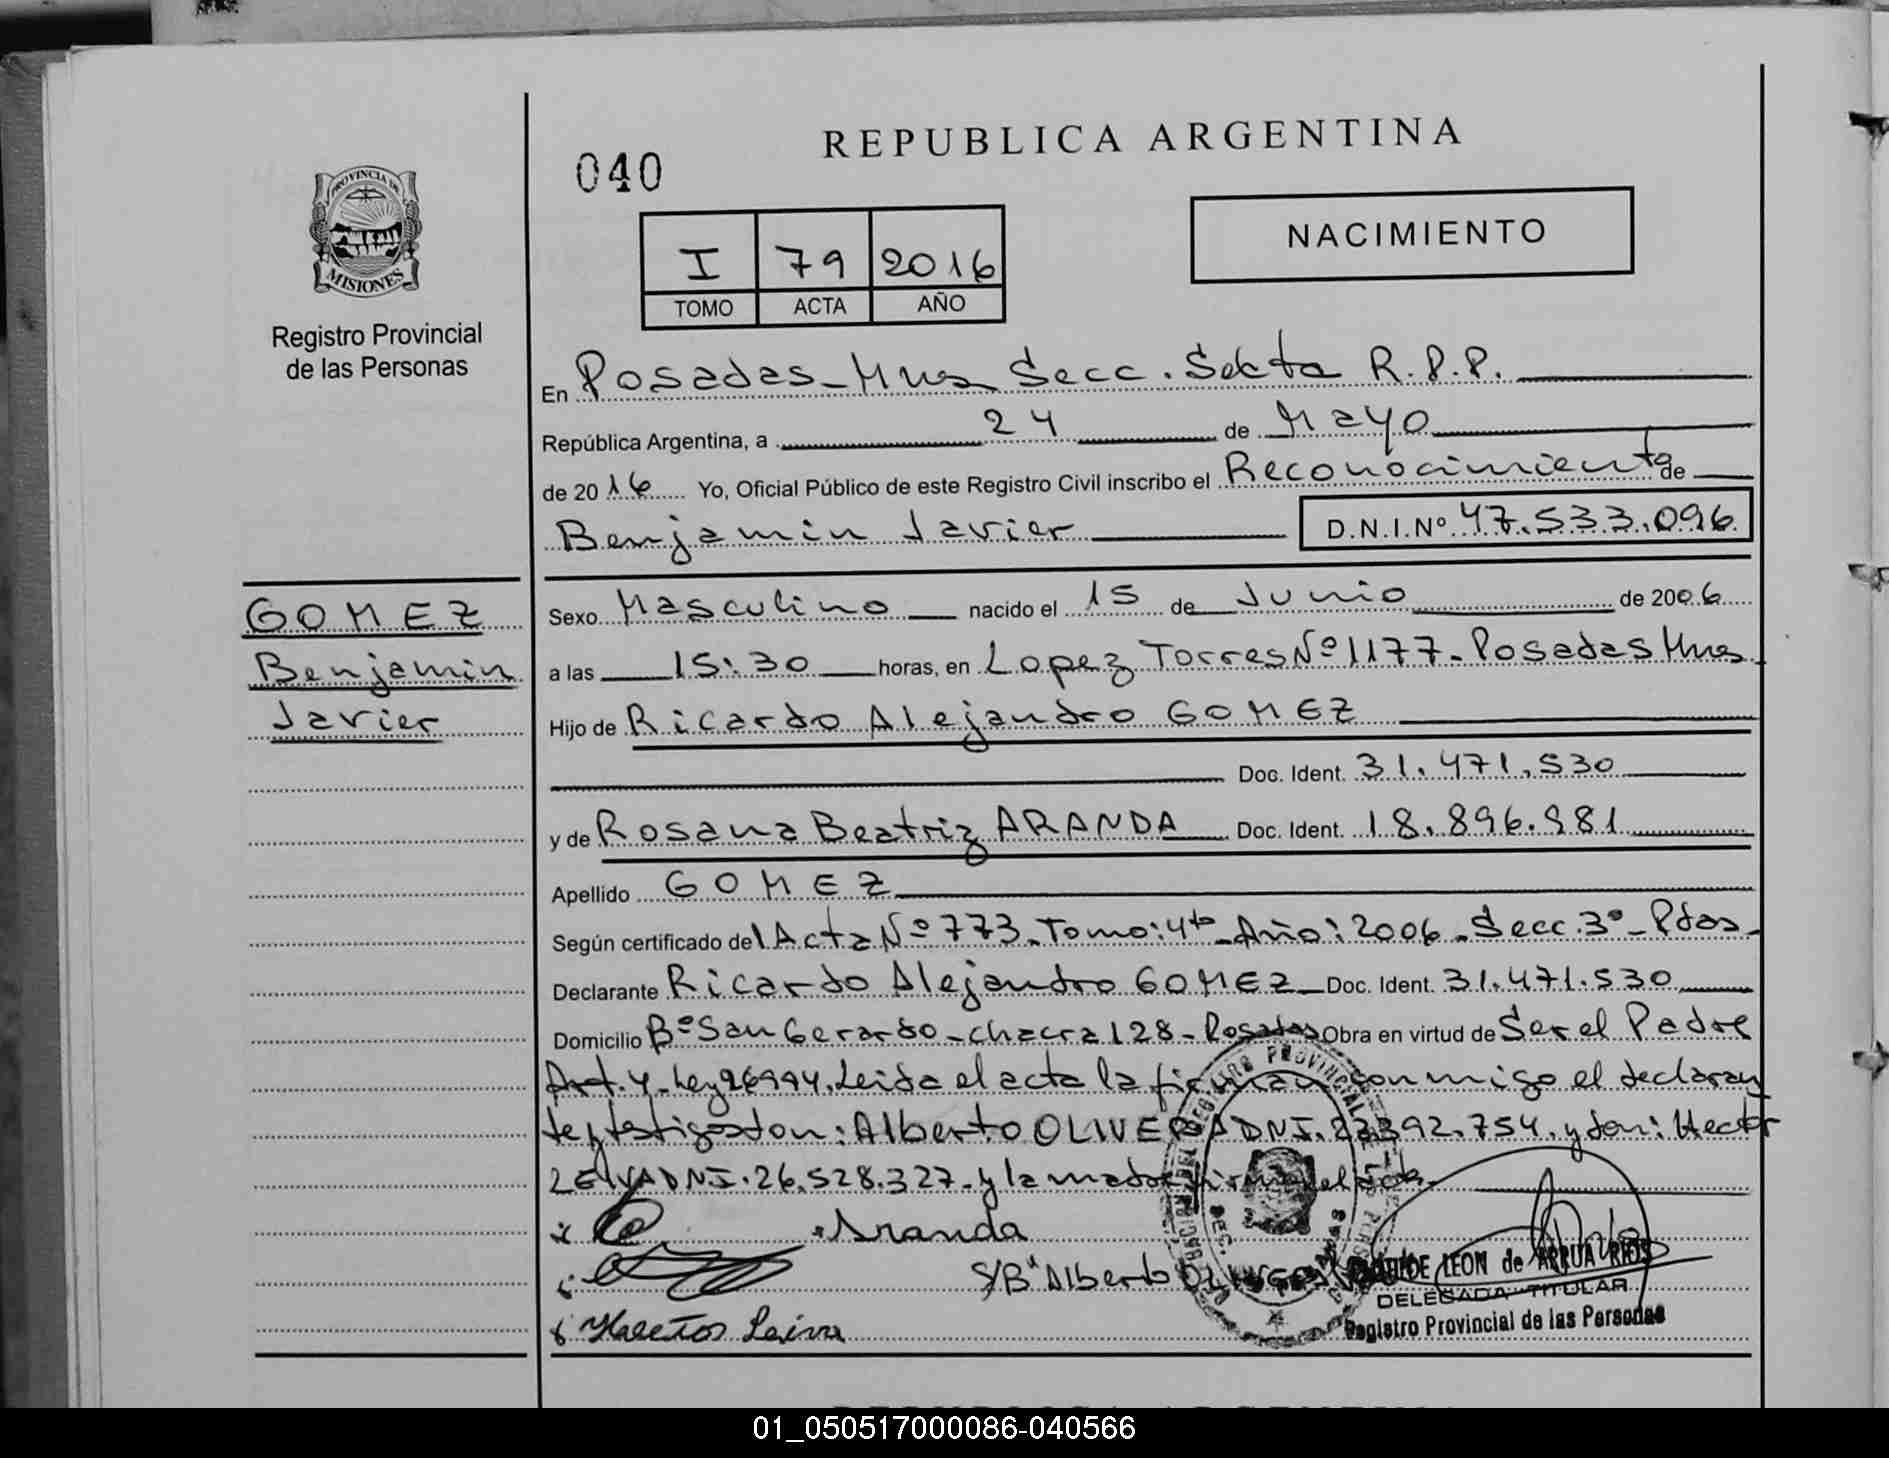 040
REPUBLICA ARGENTINA
NACIMIENTO
I 79 2016
TOMO ACTA AÑO
PROVINCIA DE
MISIONES
Registro Provincial
de las Personas
En Posadas-Mnes Secc. Sexta R.P.P.
República Argentina, a 24 de Mayo
de 2016 Yo, Oficial Público de este Registro Civil inscribo el Reconocimiento de
Benjamin Javier D.N.I.Nº 47.533.096
GOMEZ
Benjamin
Javier
Sexo Masculino nacido el 15 de Junio de 2006
a las 15:30 horas, en Lopez Torres Nº 1177-Posadas Mnes
Hijo de Ricardo Alejandro GOMEZ
Doc. Ident. 31.471.530
y de Rosana Beatriz ARANDA Doc. Ident. 18.896.981
Apellido GOMEZ
Según certificado del Acta Nº 773-Tomo:4to-Año:2006-Secc.3º-Pdas-
Declarante Ricardo Alejandro GOMEZ Doc. Ident. 31.471.530
Domicilio Bº San Gerardo-chacra 128-Posadas Obra en virtud de Ser el Padre
Art.4-Ley 26994. Leida el acta la firman conmigo el declaran
te y testigos don: Alberto OLIVERA DNI. 392.754. y don: Hector
LEIVA DNI.26.528.327-y la madre
Aranda
S/Bº Alberto
Leiva
LEON de ARRUA RIOS
DELEGADA TITULAR
Registro Provincial de las Personas
01_050517000086-040566